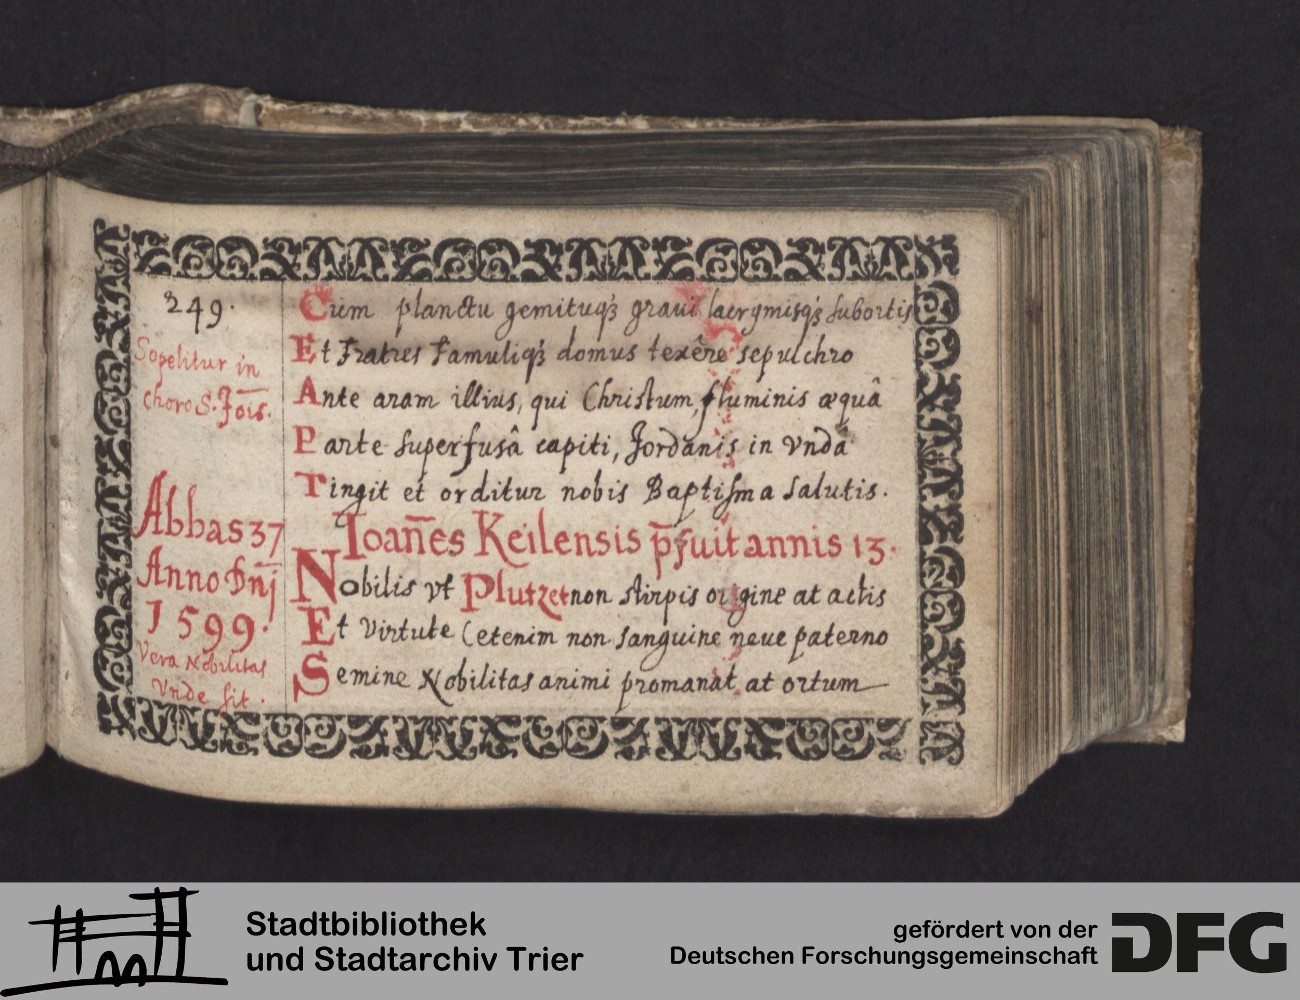 249.
Sopelitur in
choro S. Jōis.
Cum planctu gemituqꝫ graui lacrymisqꝫ subortis
Et Fratres Famuliqꝫ domus texêre sepulchro
Ante aram illius, qui Christum, fluminis æquâ
Parte superfusâ capiti, Jordanis in vndâ
Tingit et orditur nobis Baptisma salutis.
Abbas 37
Anno Dnj
1599.
Ioan̄es Keilensis p̄fuit annis 13.
Nobilis vt Plutzet non stirpis origine at actis
Et virtute (etenim non sanguine neue paterno
Semine Nobilitas animi promanat at ortum
Vera Nobilitas
Vnde sit.
Stadtbibliothek
und Stadtarchiv Trier
gefördert von der
Deutschen Forschungsgemeinschaft
DFG